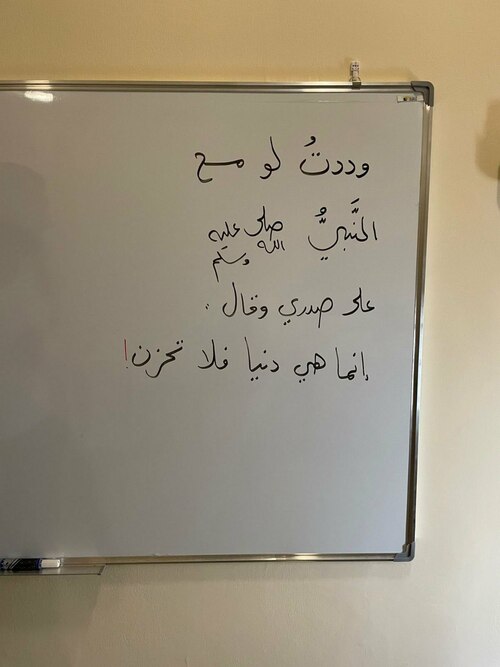 وددتُ لو مسح
النَّبيُّ صلى الله عليه وسلم
على صدري وقال :
إنما هي دنيا فلا تحزن!